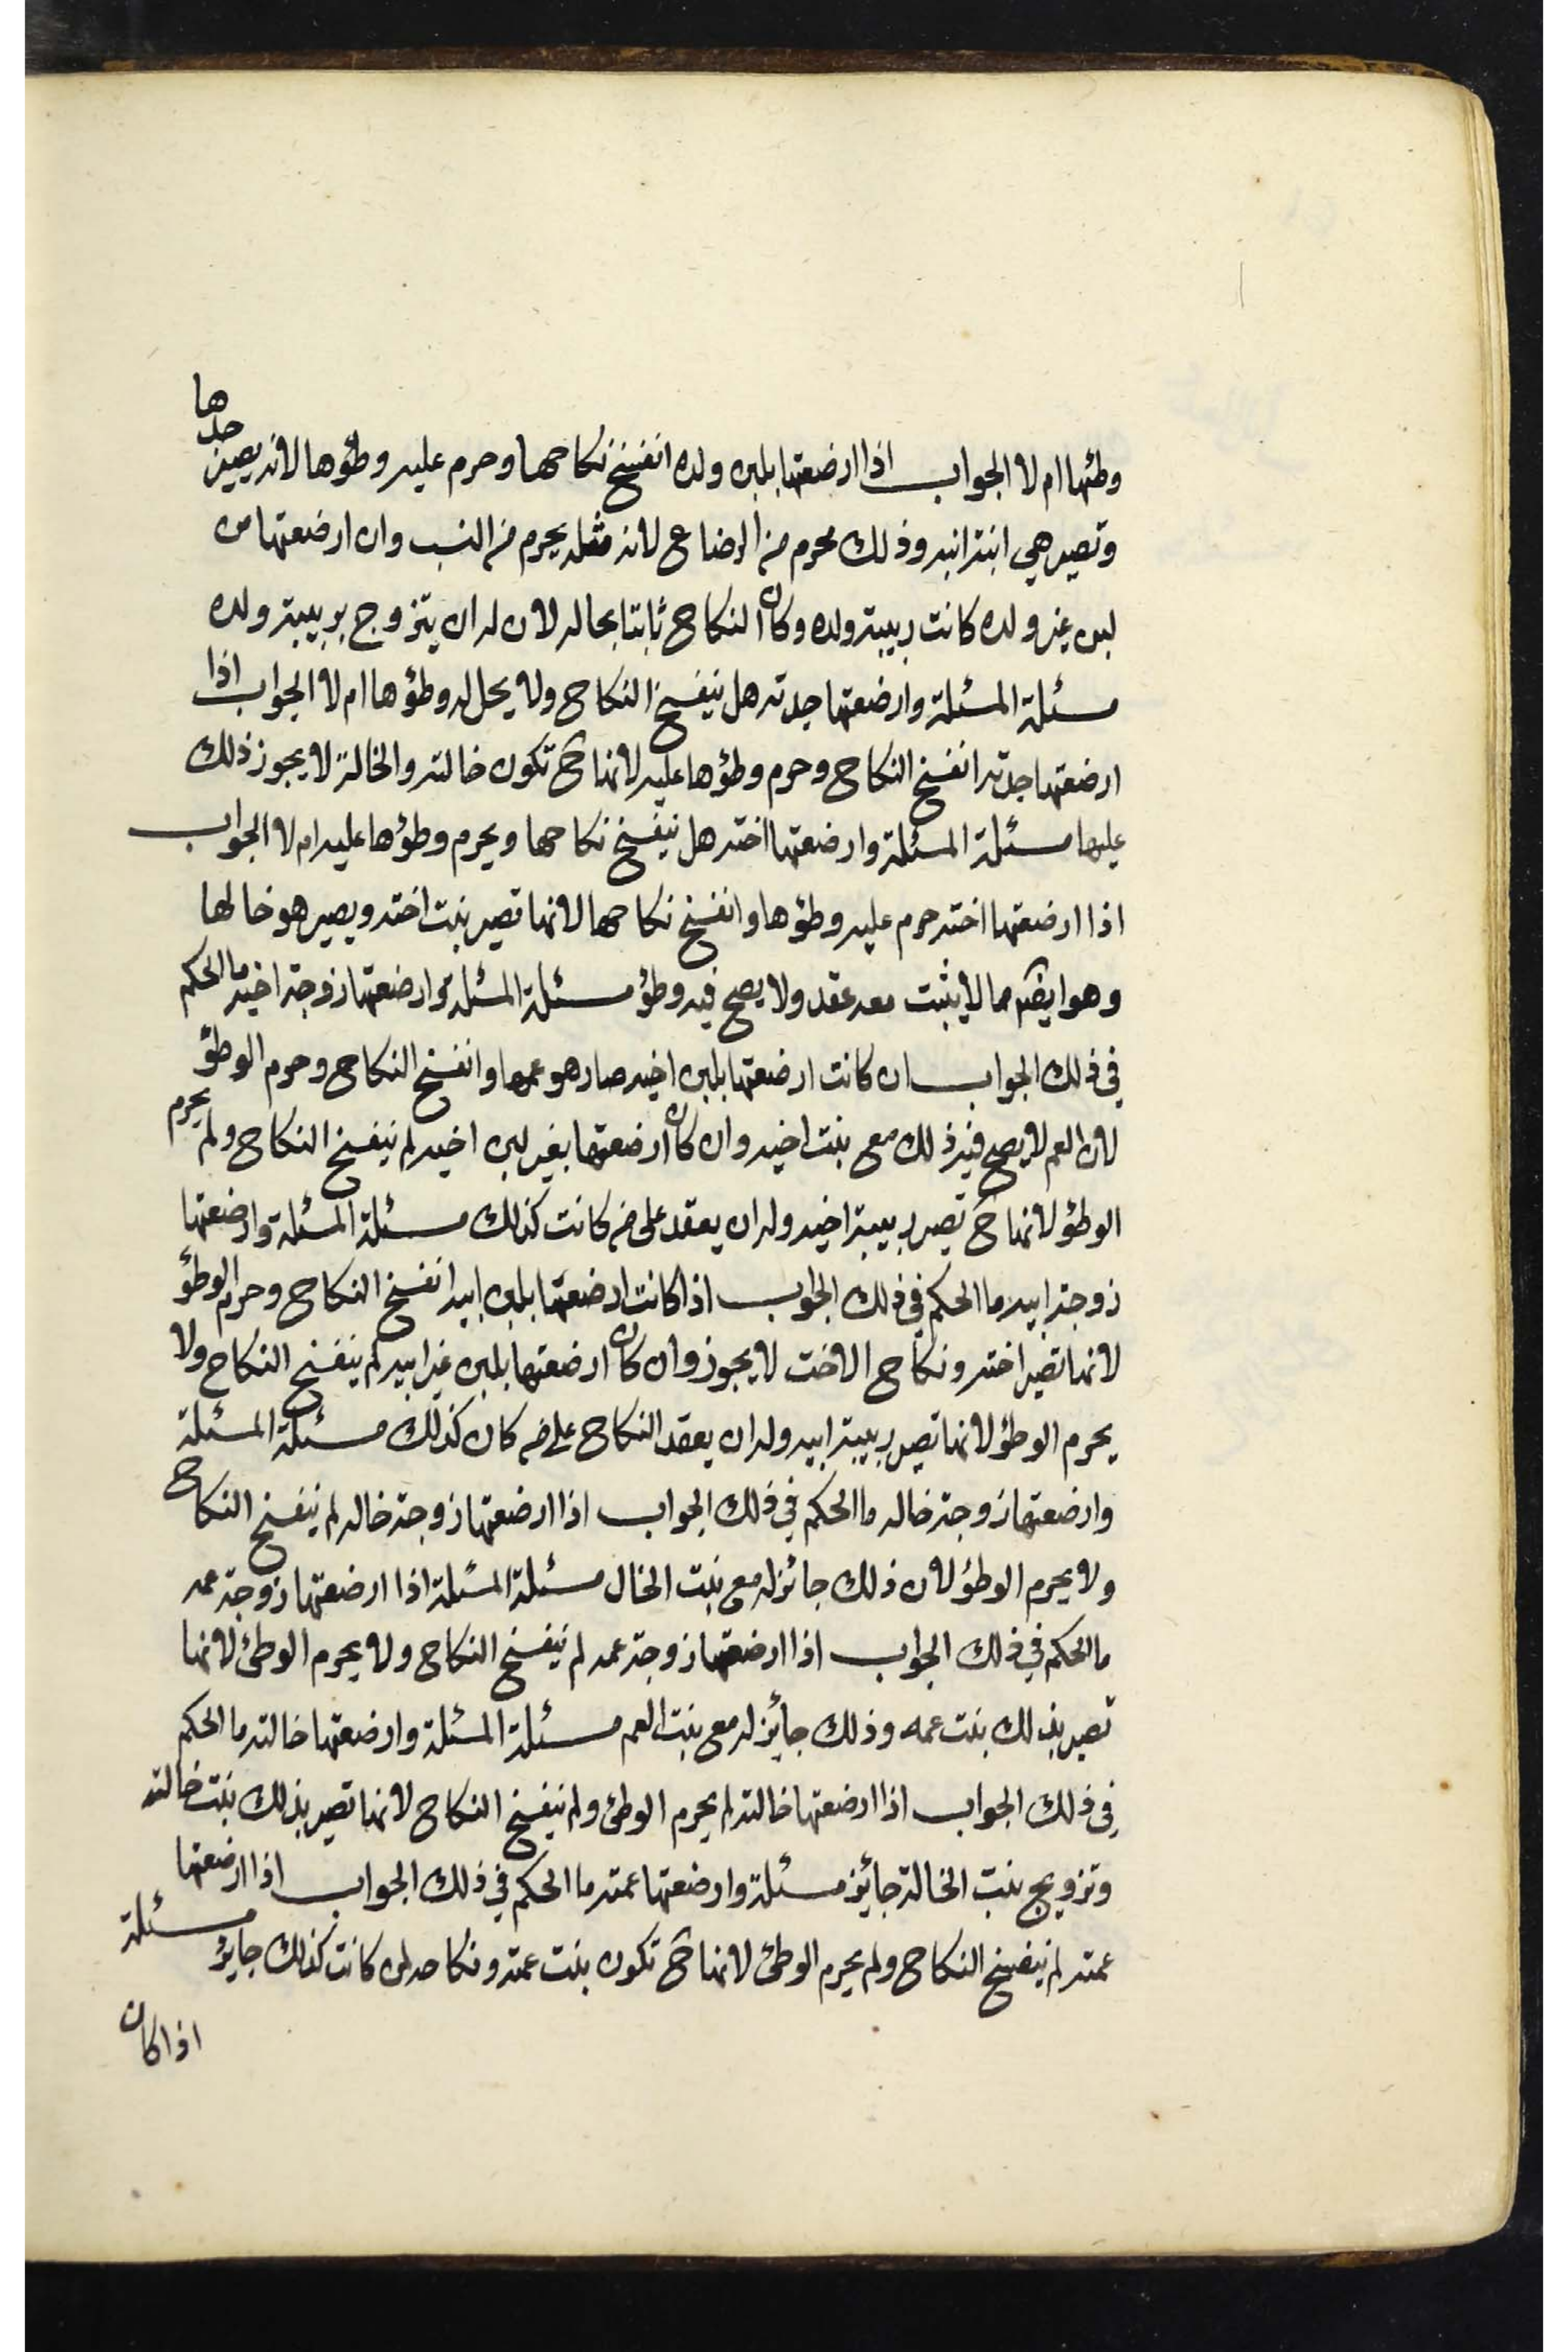 وطئها ام لا الجواب اذا ارضعتها بلبن ولده انفسخ نكاحها وحرم عليه وطؤها لانه يصير جدها
وتصير هي ابنة ابنه وذلك محرم من الرضاع لانه مثله يحرم من النسب وان ارضعتها من
لبن غير ولده كانت ربيبة ولده وكان النكاح ثابتا بحاله لان له ان يتزوج بربيبة ولده
مسئلة المسئلة وارضعتها جدته هل ينفسخ النكاح ولا يحل له وطؤها ام لا الجواب اذا
ارضعتها جدته انفسخ النكاح وحرم وطؤها عليه لانها ح تكون خالته والخالة لا يجوز ذلك
عليها مسئلة المسئلة وارضعتها اخته هل ينفسخ نكاحها ويحرم وطؤها عليه ام لا الجواب
اذا ارضعتها اخته حرم عليه وطؤها وانفسخ نكاحها لانها تصير بنت اخته ويصير هو خالها
وهو ايضا مما لا يثبت معه عقد ولا يصح فيه وطؤ مسئلة المسئلة وارضعتها زوجة اخيه ما الحكم
في ذلك الجواب ان كانت ارضعتها بلبن اخيه صار هو عمها وانفسخ النكاح وحرم الوطؤ
لان العم لا يصح فيه ذلك مع بنت اخيه وان كان ارضعتها بغير لبن اخيه لم ينفسخ النكاح ولم يحرم
الوطؤ لانها ح تصير ربيبة اخيه وله ان يعقد على من كانت كذلك مسئلة المسئلة وارضعتها
زوجة ابيه ما الحكم في ذلك الجواب اذا كانت ارضعتها بلبن ابيه انفسخ النكاح وحرم الوطؤ
لانها تصير اخته ونكاح الاخت لا يجوز وان كان ارضعتها بلبن غير ابيه لم ينفسخ النكاح ولا
يحرم الوطؤ لانها تصير ربيبة ابيه وله ان يعقد النكاح على من كان كذلك مسئلة المسئلة
وارضعتها زوجة خاله ما الحكم في ذلك الجواب اذا ارضعتها زوجة خاله لم ينفسخ النكاح
ولا يحرم الوطؤ لان ذلك جائز له مع بنت الخال مسئلة المسئلة اذا ارضعتها زوجة عمه
ما الحكم في ذلك الجواب اذا ارضعتها زوجة عمه لم ينفسخ النكاح ولا يحرم الوطئ لانها
تصير بذلك بنت عمه وذلك جايز له مع بنت العم مسئلة المسئلة وارضعتها خالته ما الحكم
في ذلك الجواب اذا ارضعتها خالته لم يحرم الوطئ ولم ينفسخ النكاح لانها تصير بذلك بنت خالته
وتزويج بنت الخالة جايز مسئلة وارضعتها عمته ما الحكم في ذلك الجواب اذا ارضعتها
عمته لم ينفسخ النكاح ولم يحرم الوطئ لانها ح تكون بنت عمته ونكاحه لمن كانت كذلك جايز مسئلة
اذا كان